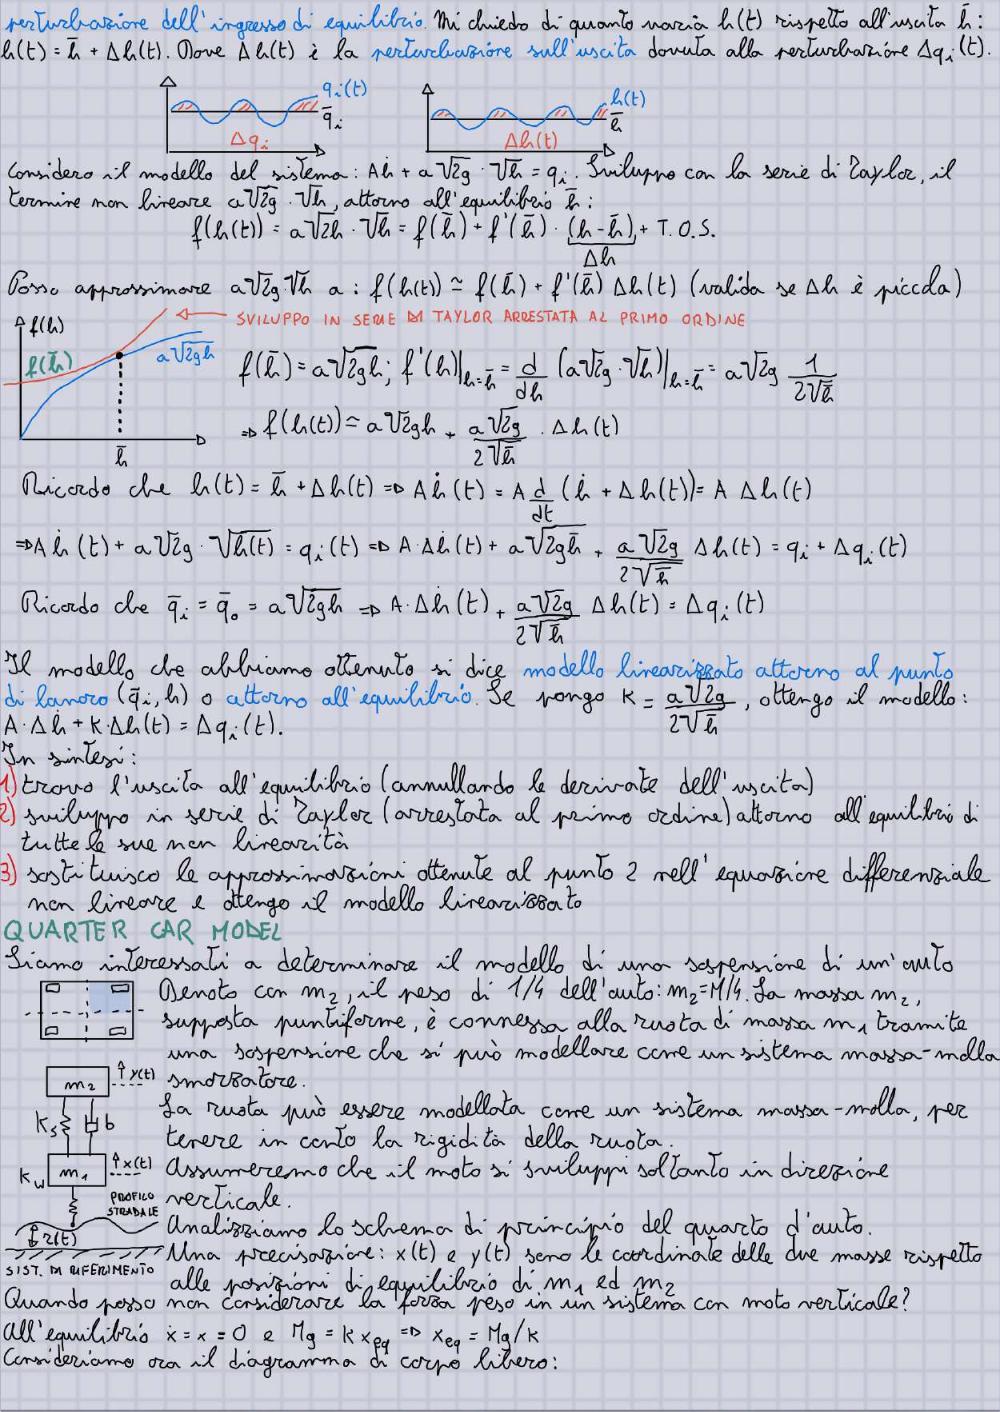 perturbazione dell'ingresso di equilibrio. Mi chiedo di quanto varia h(t) rispetto all'uscita h̄:
h(t) = h̄ + Δh(t). Dove Δh(t) è la perturbazione sull'uscita dovuta alla perturbazione Δqᵢ(t).
qᵢ(t) q̄ᵢ Δqᵢ
h(t) h̄ Δh(t)
Considero il modello del sistema: Aḣ + a√2g · √h = qᵢ. Sviluppo con la serie di Taylor, il
termine non lineare a√2g · √h, attorno all'equilibrio h̄:
f(h(t)) = a√2h · √h = f(h̄) + f'(h̄) · (h - h̄) + T.O.S.
Δh
Posso approssimare a√2g √h a: f(h(t)) ≃ f(h̄) + f'(h̄) Δh(t) (valida se Δh è piccola)
f(h)
SVILUPPO IN SERIE DI TAYLOR ARRESTATA AL PRIMO ORDINE
f(h̄) a√2gh
h̄
f(h̄) = a√2gh; f'(h)|h=h̄ = d/dh (a√2g · √h)|h=h̄ = a√2g 1/2√h̄
⇒ f(h(t)) ≃ a√2gh + a√2g/2√h̄ · Δh(t)
Ricordo che h(t) = h̄ + Δh(t) ⇒ Aḣ(t) = A d/dt (h̄ + Δh(t)) = A Δḣ(t)
⇒ Aḣ(t) + a√2g · √h(t) = qᵢ(t) ⇒ A·Δḣ(t) + a√2gh̄ + a√2g/2√h̄ Δh(t) = qᵢ + Δqᵢ(t)
Ricordo che q̄ᵢ = q̄ₒ = a√2gh ⇒ A·Δḣ(t) + a√2g/2√h̄ Δh(t) = Δqᵢ(t)
Il modello che abbiamo ottenuto si dice modello linearizzato attorno al punto
di lavoro (q̄ᵢ, h) o attorno all'equilibrio. Se pongo K = a√2g/2√h̄, ottengo il modello:
A·Δḣ + K·Δh(t) = Δqᵢ(t).
In sintesi:
1) trovo l'uscita all'equilibrio (annullando le derivate dell'uscita)
2) sviluppo in serie di Taylor (arrestata al primo ordine) attorno all'equilibrio di
tutte le sue non linearità
3) sostituisco le approssimazioni ottenute al punto 2 nell'equazione differenziale
non lineare e ottengo il modello linearizzato
QUARTER CAR MODEL
Siamo interessati a determinare il modello di una sospensione di un'auto
Denoto con m₂, il peso di 1/4 dell'auto: m₂=M/4. La massa m₂,
supposta puntiforme, è connessa alla ruota di massa m₁ tramite
una sospensione che si può modellare come un sistema massa-molla
smorzatore.
m₂ y(t)
La ruota può essere modellata come un sistema massa-molla, per
Kₛ b
tenere in conto la rigidità della ruota.
Kw m₁ x(t)
Assumeremo che il moto si sviluppi soltanto in direzione
verticale.
PROFILO
STRADALE
Analizziamo lo schema di principio del quarto d'auto.
r(t)
Una precisazione: x(t) e y(t) sono le coordinate delle due masse rispetto
SIST. DI RIFERIMENTO
alle posizioni di equilibrio di m₁ ed m₂
Quando posso non considerare la forza peso in un sistema con moto verticale?
All'equilibrio ẋ = x = 0 e Mg = k xeq ⇒ xeq = Mg/k
Consideriamo ora il diagramma di corpo libero: